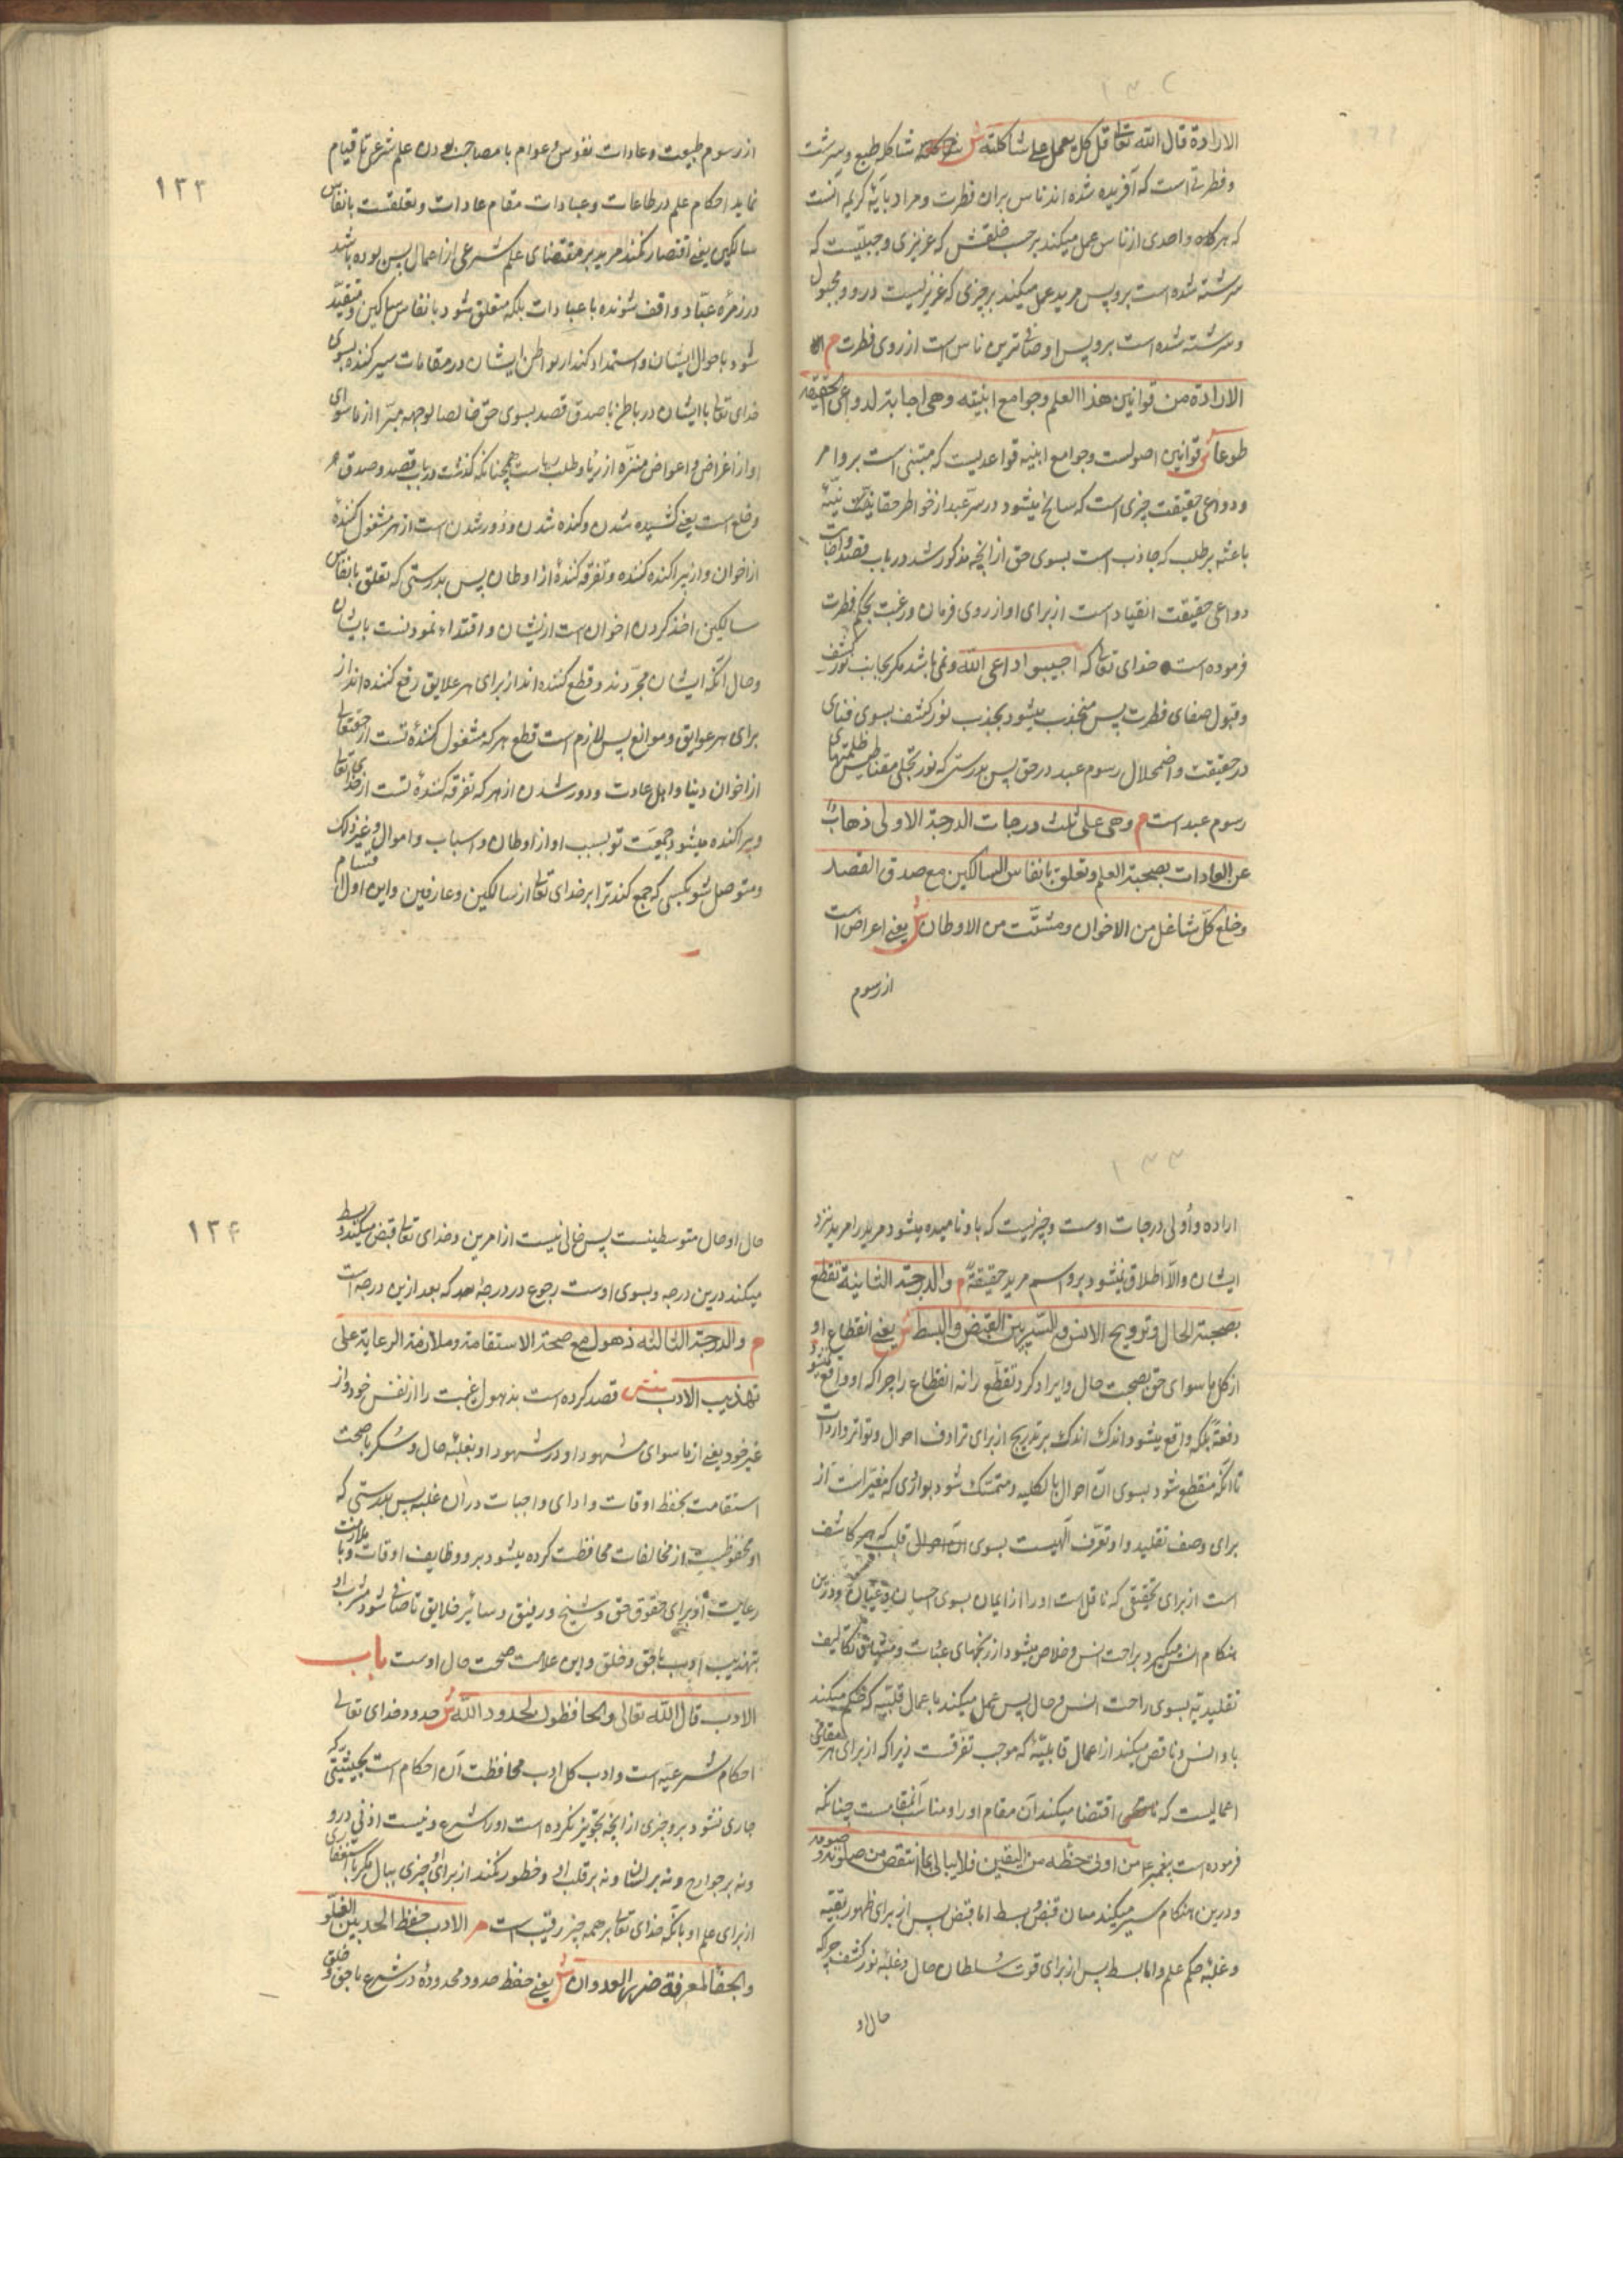 ۱۳۲
الارادة قال الله تعا قل کل یعمل علی شاکلته ش شاکله طبع و سرشت
و فطرتی است که آفریده شده اند ناس بران فطرت و مراد بآیهٔ کریمه آنست
که هرگاه واحدی از ناس عمل میکند بر حسب خلقتش که غریزی و جبلیست که
سرشته شده است برو پس مرید عمل میکند بر چیزی که غریزیست درو و مجبول
و سرشته شده است برو پس او صافترین ناس است از روی فطرت م
الارادة من قوانین هذا العلم و جوامع ابنیته و هی اجابة لدواعی الحقیقة
طوعا ش قوانین اصولست و جوامع ابنیه قواعدیست که مبتنی است برو امر
و دواعی حقیقت چیزی است که سانح میشود در سر عبد از خواطر حقانیت
باعثه بر طلب که جاذب است بسوی حق از انچه مذکور شد در باب قصد و اجابت
دواعی حقیقت انقیاد است از برای او از روی فرمان و رغبت بحکم فطرت
فرموده است خدای تعا که اجیبوا داعی الله و نمی باشد مکر بجانب نور کشف
و قبول صفای فطرت پس منجذب میشود بجذب نور کشف بسوی فنای
در حقیقت و اضمحلال رسوم عبد در حق پس بدرستی که نور تجلی مقناطیس ظلمتهای
رسوم عبد است م و هی علی ثلث درجات الدرجة الاولی ذهاب
عن العادات بصحبة العلم و تعلق بانفاس السالکین مع صدق القصد
و خلع کل شاغل من الاخوان و مشتت من الاوطان ش یعنی اعراض است
از رسوم
۱۳۳
از رسوم طبیعت و عادات نفوس عوام با مصاحب بودن علم شرعی تا قیام
نماید احکام علم در طاعات و عبادات مقام عادات و تعلقست بانفاس
سالکین یعنی اقتصار نکند مرید بر مقتضای علم شرعی از اعمال پس بوده باشد
در زمرهٔ عباد واقف شونده با عبادات بلکه متعلق شود بانفاس سالکین و مقید
شود باحوال ایشان و استمداد کند از بواطن ایشان در مقامات سیر کننده بسوی
خدای تعا با ایشان در باطن با صدق قصد بسوی حق خالصا لوجهه مبرا از ما سوای
او از اغراض و اعواض منزه از ریا و طلب همچنانکه گذشت در باب قصد و صدق م
و خلع است یعنی کشیده شدن و کنده شدن و دور شدن است از هر مشغول کنندهٔ
از اخوان و از پراکنده کننده و تفرقه کنندهٔ از اوطان پس بدرستی که تعلق بانفاس
سالکین اخذ کردن اخوان است از یشان و اقتداء نمودنست بایشان
و حال آنکه ایشان مجردند و قطع کننده اند از برای هر علایق رفع کننده اند از
برای هر عوایق و موانع پس لازم است قطع هر که مشغول کنندهٔ تست از حقتعا
از اخوان دنیا و اهل عادت و دور شدن از هر که تفرقه کنندهٔ تست از خدایتعا
و پراکنده میشود جمعیت تو بسبب او از اوطان و اسباب و اموال و غیر ذلک
و متوصل شو بکسی که جمع کند ترا بر خدای تعا از سالکین و عارفین و این اول اقسام
۱۳۳
اراده و أولی درجات اوست و چیزیست که باو نامیده میشود مرید را مرید نزد
ایشان و الا اطلاق نمیشود برو اسم مرید حقیقة م و الدرجة الثانیة تقطع
بصحبة الحال و ترویح الانس و السیر بین القبض و البسط ش یعنی انقطاع او
از کل ما سوای حق بصحبت حال و ایراد کرد تقطع را نه انقطاع را چرا که او واقع نمیشود
دفعة بلکه واقع میشود اندک اندک بر تدریج از برای ترادف احوال و تواتر واردات
تا آنکه منقطع شود بسوی آن احوال بالکلیه و متمسک شود بوازی که مغیر است از
برای وصف تقلید و او تعرف آلهیست بسوی آن احوال قلب که هر کاشف
است از برای تحقیقی که ناقل است او را از ایمان بسوی احسان و عیان و درین
هنکام انس میگیرد براحت انس و خلاص میشود از رنجهای عبادت و مشاق تکالیف
تقلیدیه بسوی راحت انس و حال پس عمل میکند باعمال قلبیه که حکم میکند
باو انس و ناقص میکند از اعمال قالبیهٔ که موجب تفرقست زیرا که از برای هر مقامی
اعمالیست که اقتضا میکند آن مقام او را و مناسب آنمقامست چنانکه
فرموده است پیغمبر ع من اوتی حظه من الیقین فلا یبالی بما انتقص من صلوته و صومه
و درین هنکام سیر میکند میان قبض و بسط اما قبض پس از برای ظهور بقیه
و غلبهٔ حکم علم و اما بسط پس از برای قوت سلطان حال و غلبهٔ نور کشف چرا که
حال او
۱۳۴
حال او حال متوسطینست پس خالی نیست از امرین و خدای تعا قبض میکند و بسط
میکند درین درجه و بسوی اوست رجوع در درجهٔ بعد که بعد ازین درجه است
م و الدرجة الثالثه ذهول مع صحة الاستقامة و ملازمة الرعایة علی
تهذیب الادب ش قصد کرده است بذهول غیبت را از نفس خود و از
غیر خود یعنی از ما سوای مشهود او در شهود او بغلبهٔ حال و سکر با صحت
استقامت بحفظ اوقات و ادای واجبات در ان غلبه پس بدرستی که
او محفوظیست از مخالفات محافظت کرده میشود برو وظایف اوقات و با ملازمت
رعایت او برای حقوق حق و شیخ و رفیق و سائر خلایق تا صافی شود مشرب او
بتهذیب ادب با حق و خلق و این علامت صحت حال اوست باب
الادب قال الله تعالی و الحافظون لحدود الله ش حدود خدای تعالی
احکام شرعیه است و ادب کل ادب محافظت آن احکام است بحیثیتی که
جاری نشود برو چیزی از انچه تجویز نکرده است او را شرع و نیست اذنی درو
و نه بر جوارح و نه بر لسان و نه بر قلب او و خطور نکند از برای او چیزی ببال مکر باستغفاری
از برای علم او بآنکه خدای تعا بر همه چیز رقیب است م الادب حفظ الحد بین الغلو
و الجفا لمعرفة ضرر العدوان ش یعنی حفظ حدود محدودهٔ در شرع با حق و خلق